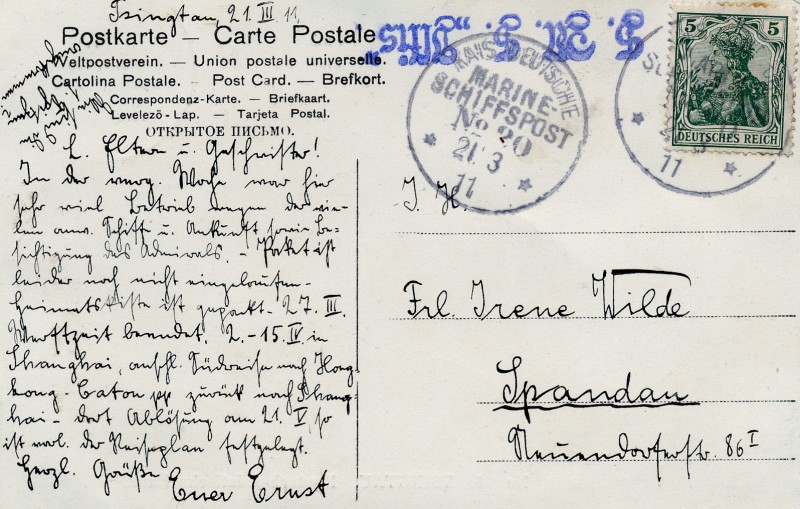 Tsingtau, 21. III 11,
Postkarte — Carte Postale
Weltpostverein. — Union postale universelle.
Cartolina Postale. — Post Card. — Brefkort.
Correspondenz-Karte. — Briefkaart.
Levelező - Lap. — Tarjeta Postal.
ОТКРЫТОЕ ПИСЬМО.
L. Eltern u. Geschwister!
In der verg. Woche war hier
sehr viel Betrieb wegen der vie-
len anw. Schiffe u. Ankunft sowie Be-
sichtigung des Admirals. – Paket ist
leider noch nicht eingelaufen –
Heimatskiste ist gepackt. 27. III.
Werftzeit beendet. 2.–15. IV in
Shanghai, anschl. Südreise nach Hong-
kong. Caton pp zurück nach Shang-
hai – dort Ablösung am 21. V, so
ist vorl. der Reiseplan festgelegt.
Herzl. Grüße
Euer Ernst
S. M. S. "Iltis"
KAIS. DEUTSCHE
MARINE-
SCHIFFSPOST
No 20
21 3
11
11
5 5
DEUTSCHES REICH
I. H.
Frl. Irene Wilde
Spandau
Neuendorferstr. 86 I